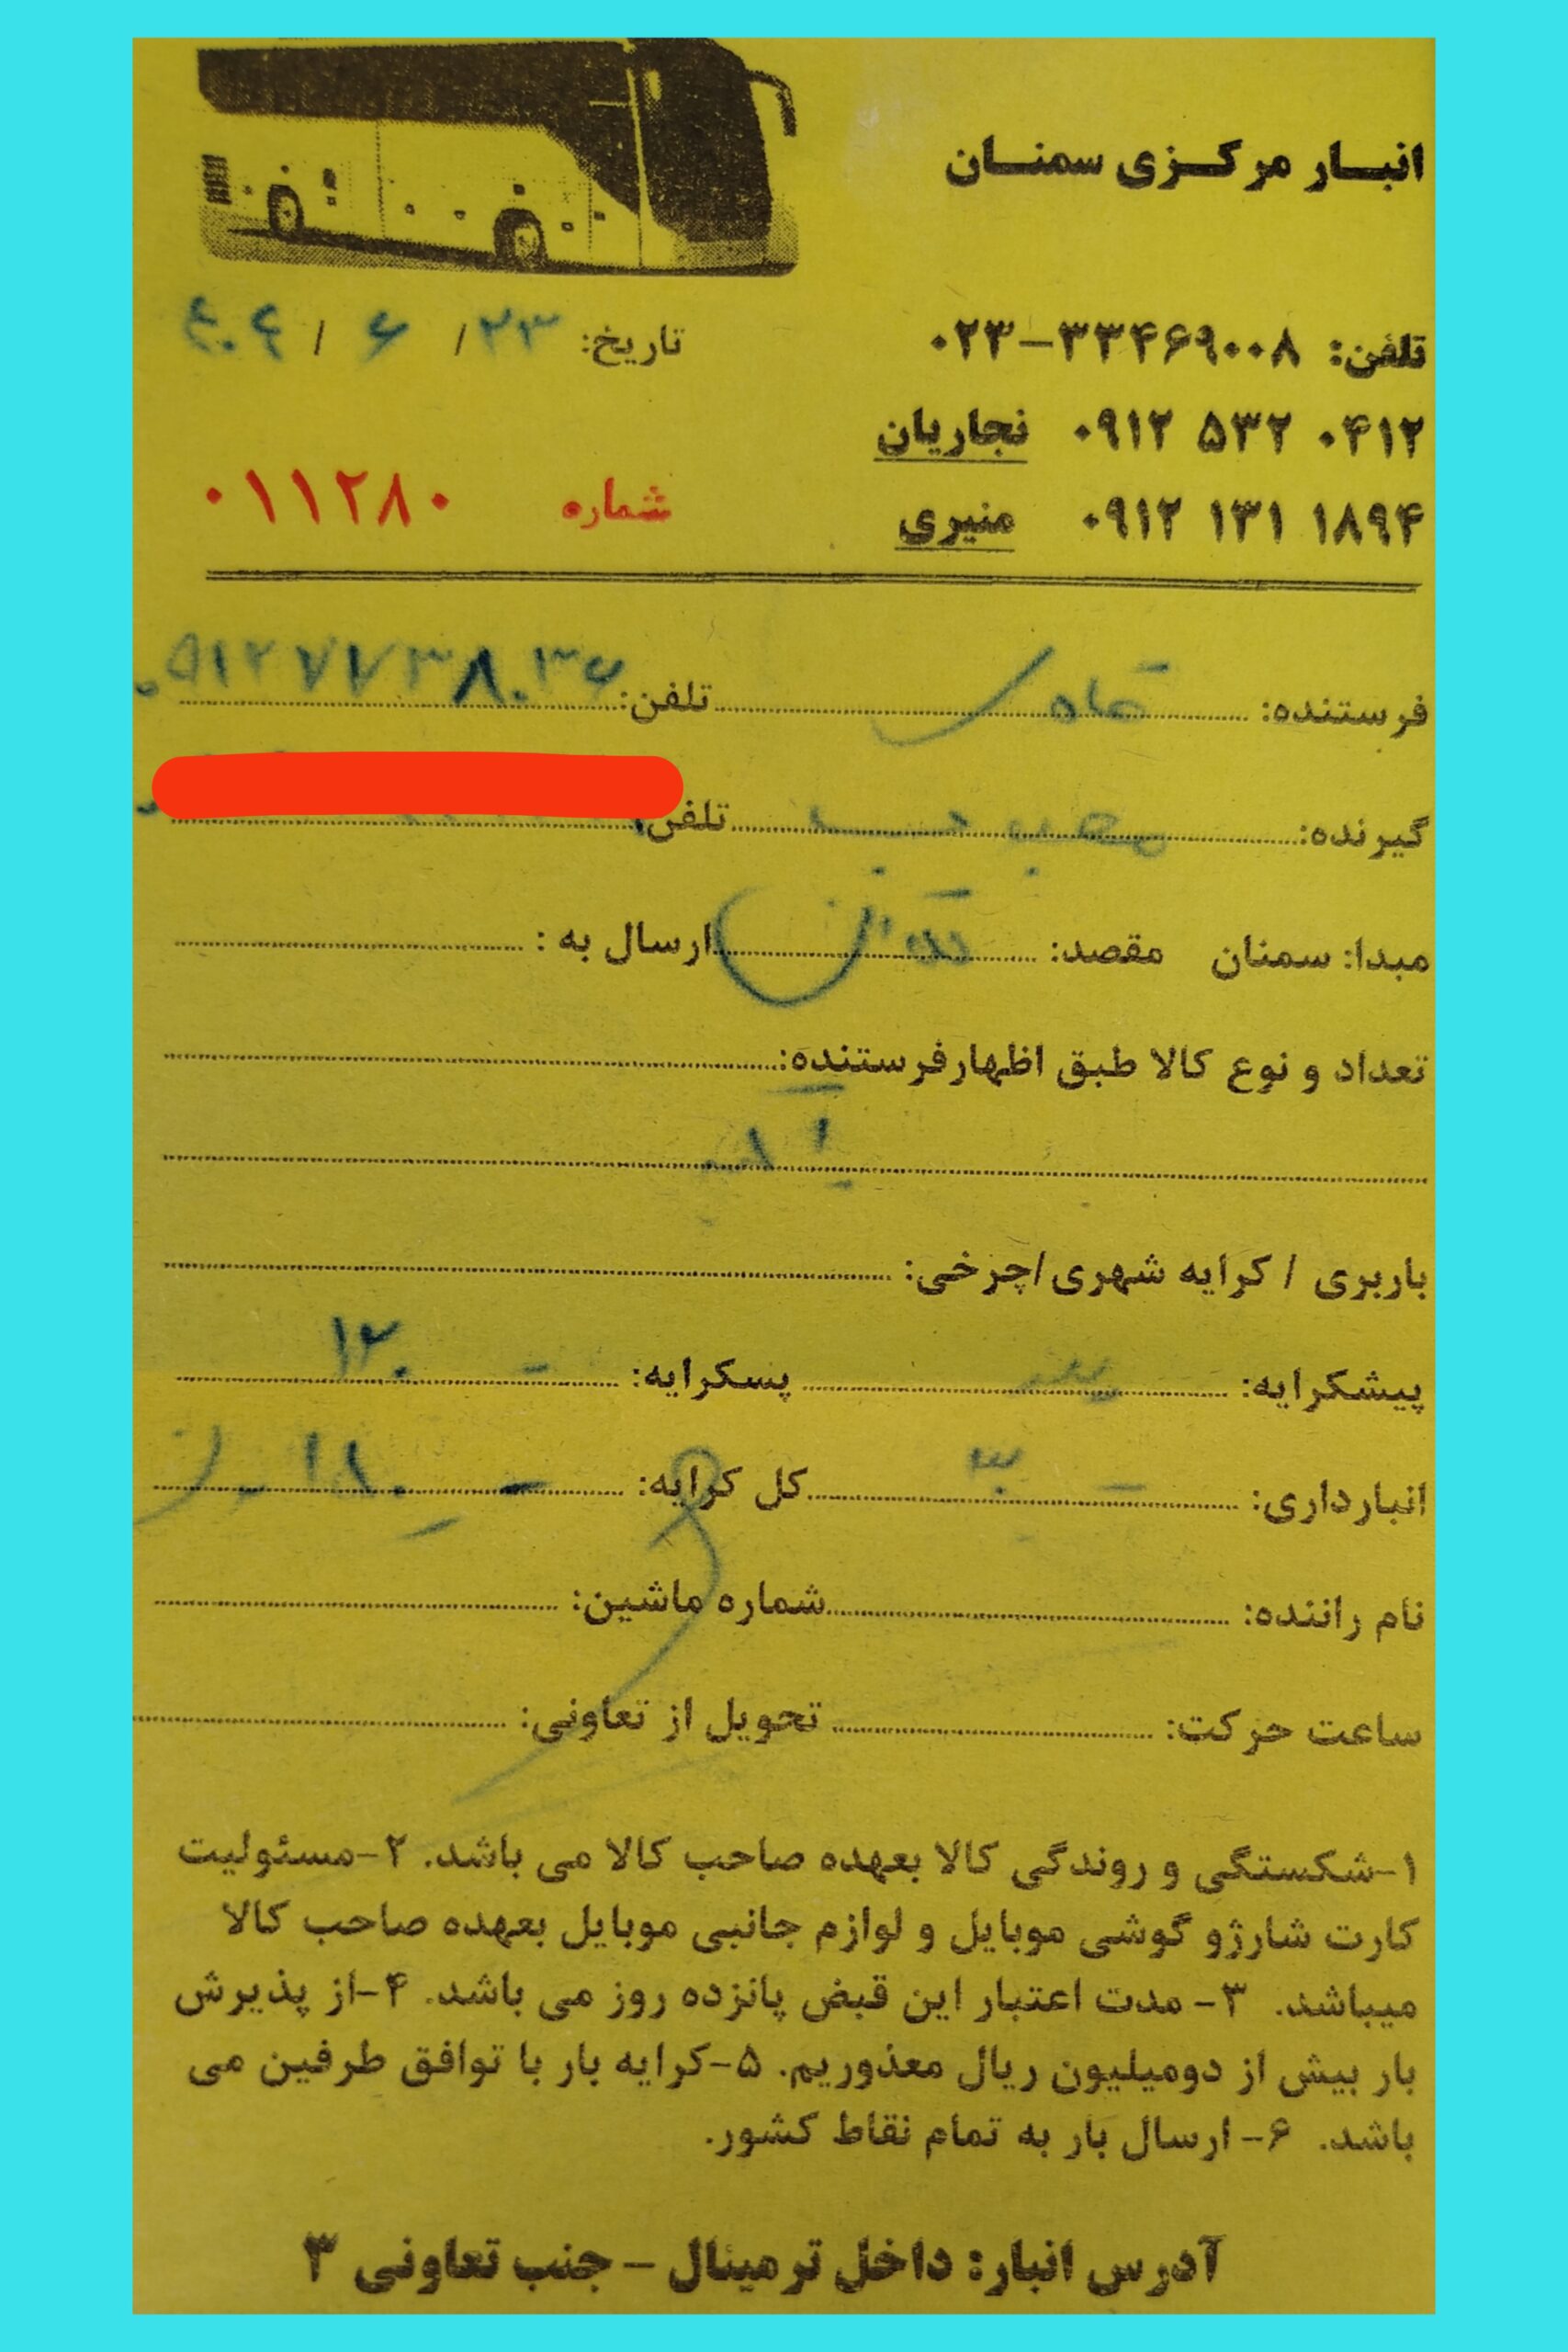 انبار مرکزی سمنان
تلفن: ۰۲۳-۳۳۴۶۹۰۰۸
تاریخ: ۲۳ / ۶ / ۴۰۴
۰۹۱۲ ۵۳۲ ۰۴۱۲ نجاریان
۰۹۱۲ ۱۳۱ ۱۸۹۴ منیری
شماره ۰۱۱۲۸۰
فرستنده: تلفن: ۰۹۱۲۷۷۳۸۰۳۶
گیرنده: تلفن:
مبدا: سمنان مقصد: ارسال به :
تعداد و نوع کالا طبق اظهارفرستنده:
باربری / کرایه شهری/چرخی:
پیشکرایه: پسکرایه: ۱۲۰
انبارداری: ۳۰ کل کرایه: ۱۸۰
نام راننده: شماره ماشین:
ساعت حرکت: تحویل از تعاونی:
۱-شکستگی و روندگی کالا بعهده صاحب کالا می باشد. ۲-مسئولیت
کارت شارژو گوشی موبایل و لوازم جانبی موبایل بعهده صاحب کالا
میباشد. ۳- مدت اعتبار این قبض پانزده روز می باشد. ۴-از پذیرش
بار بیش از دومیلیون ریال معذوریم. ۵-کرایه بار با توافق طرفین می
باشد. ۶- ارسال بار به تمام نقاط کشور.
آدرس انبار: داخل ترمینال - جنب تعاونی ۳